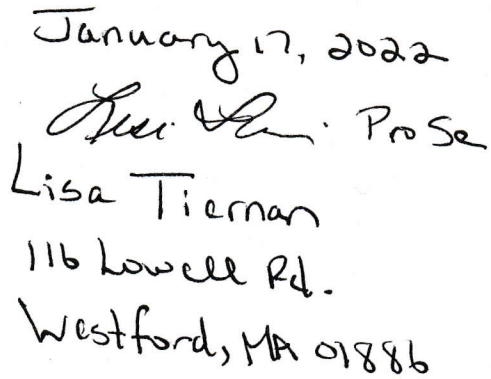 January 17, 2022
Pro Se
Lisa Tiernan
116 Lowell Rd.
Westford, MA 01886